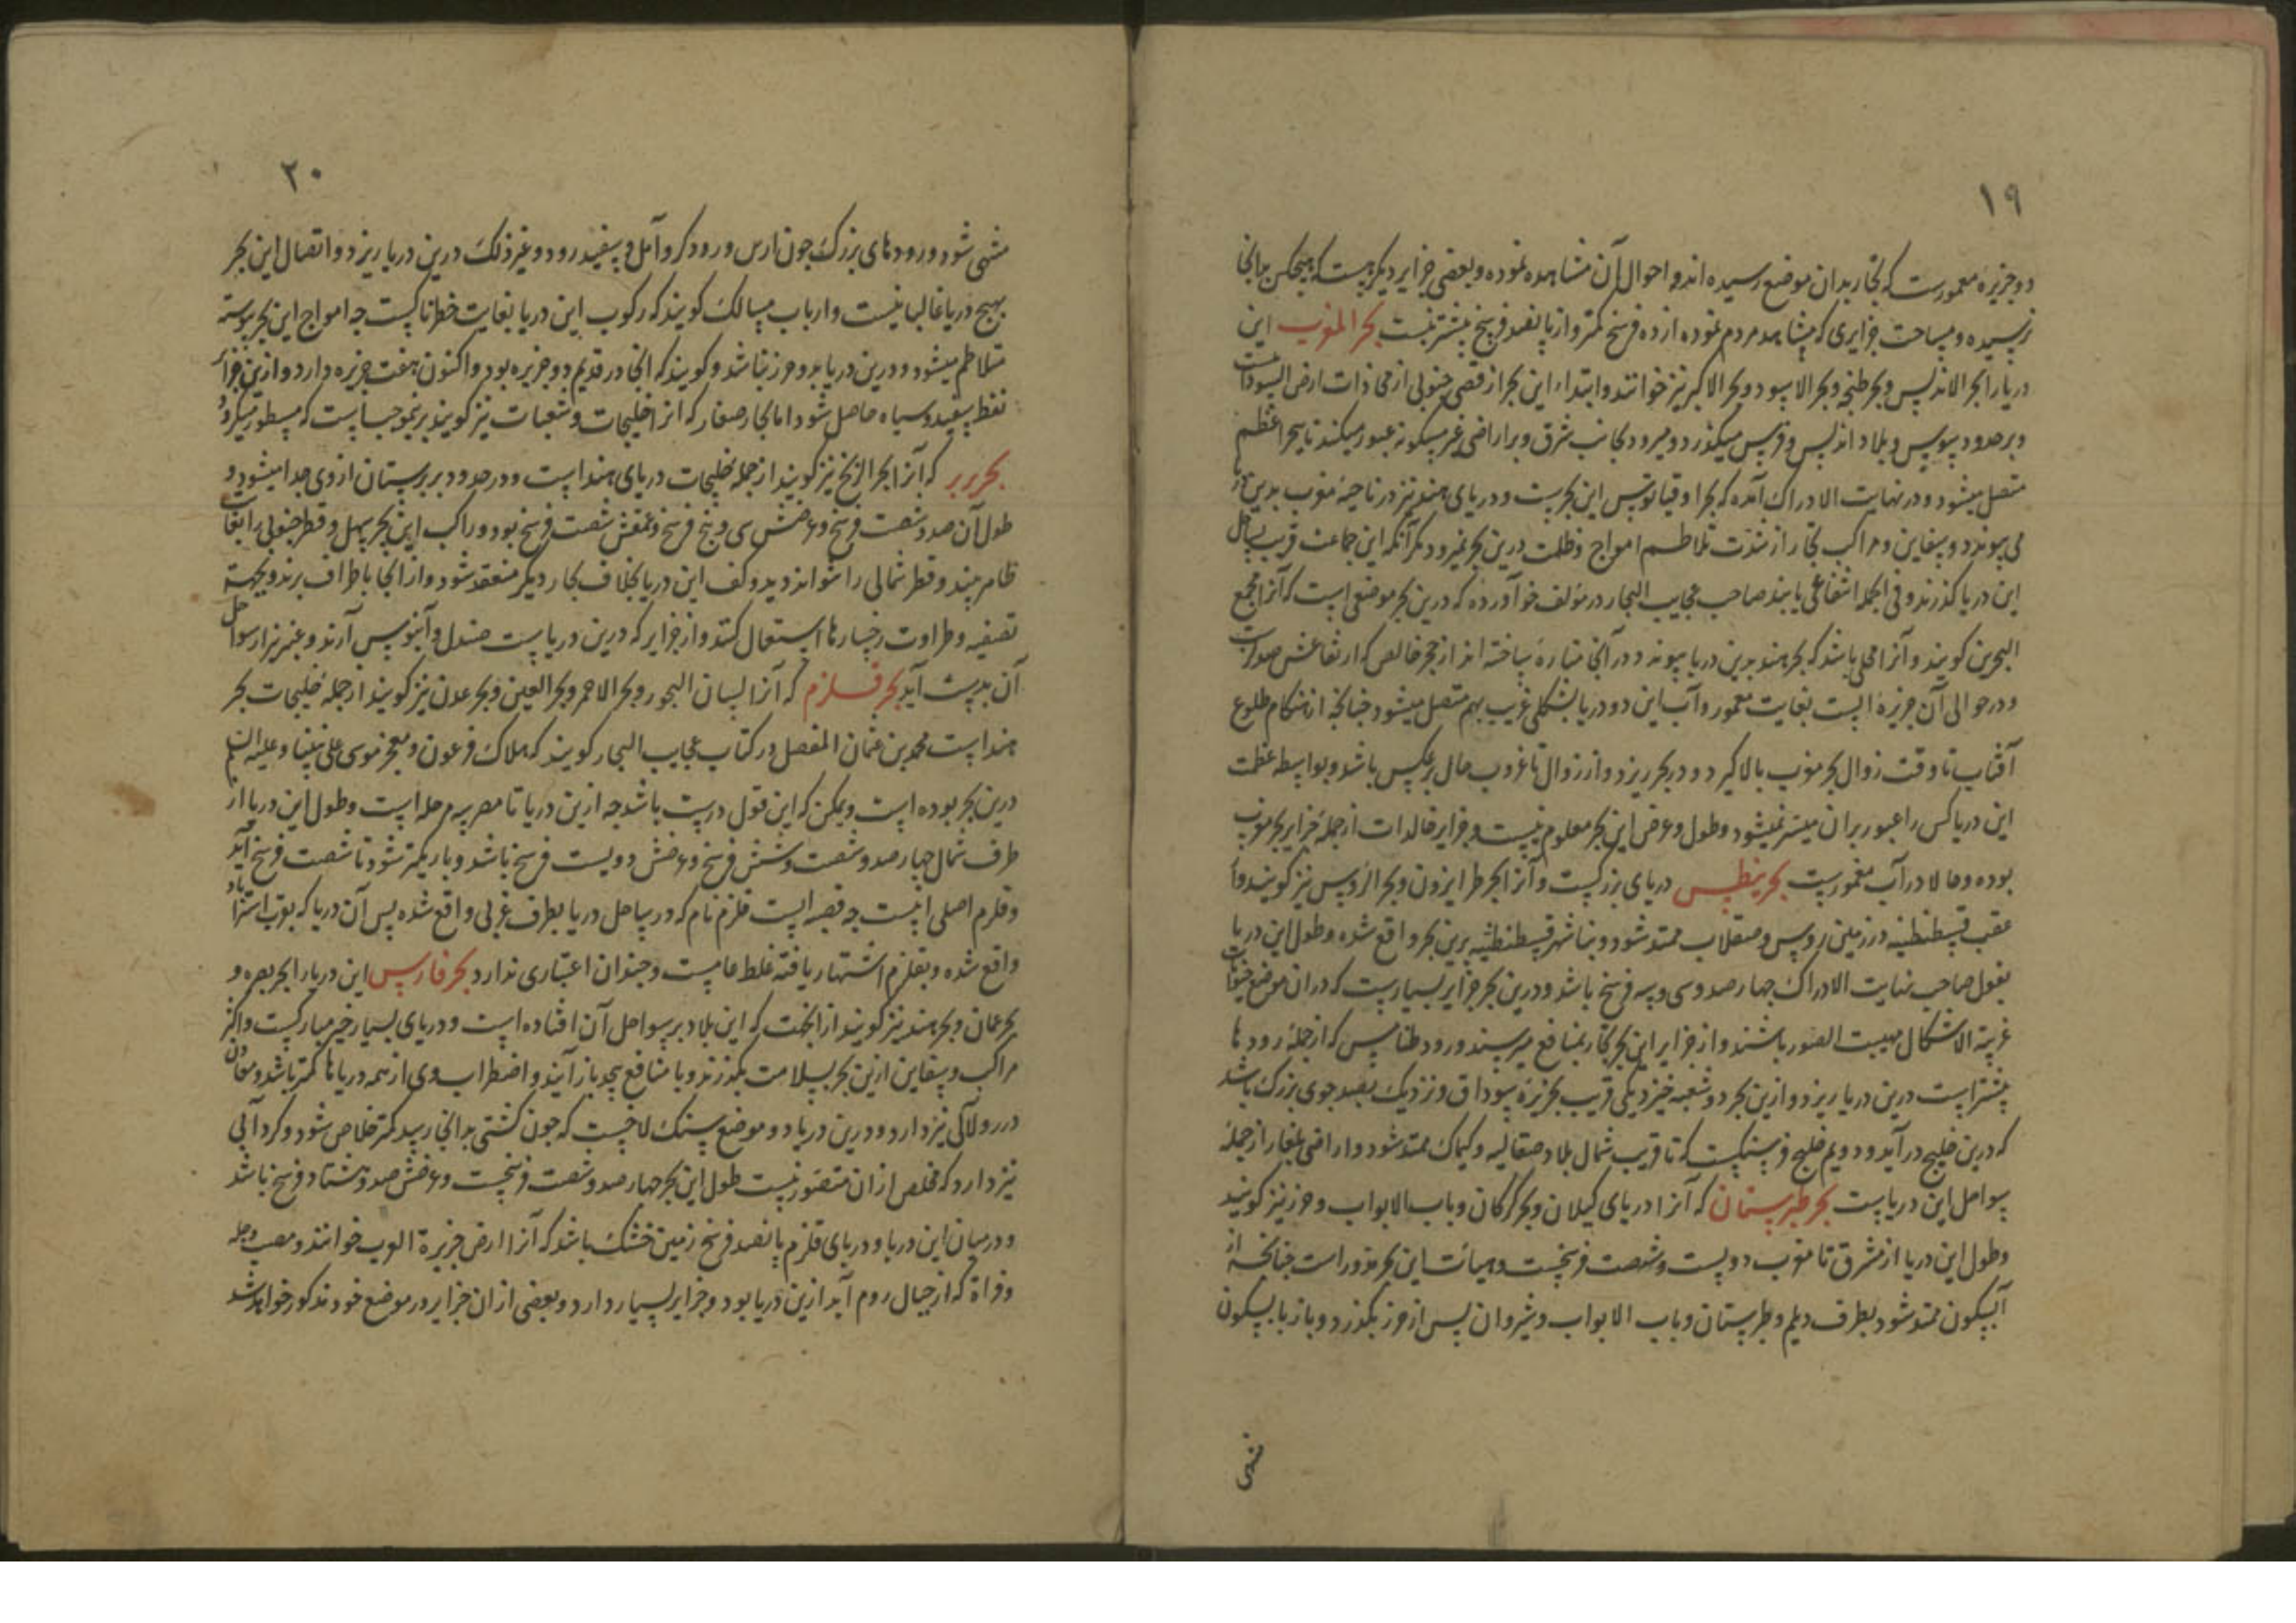 ۱۹
دو جزیره معمورست که تجار بدان موضع رسیده اند و احوال آن مشاهده نموده و بعضی جزایر دیگر هست که هیچکس بدانجا
نرسیده و مساحت جزایری که مشاهد مردم نموده از ده فرسخ کمتر و از پانصد فرسخ بیشتر نیست بحر المغرب این
دریا را بحر الاندلس و بحر طنجه و بحر الاسود و بحر الاکبر نیز خوانند و ابتداء این بحر از قصی جنوبی از محاذات ارض السودانست
و بر حدود سوس و بلاد اندلس و میگذرد و میرود بجانب شرق و بر اراضی غیر مسکونه عبور میکند تا ببحر اعظم
متصل میشود و در نهایت الادراک آمده که بحر اوقیانوس این بحرست و دریای هند نیز در ناحیهٔ مغرب بدین بحر
می پیوندد و سفاین و مراکب تجار از شدت تلاطم امواج و ظلمت درین بحر نرود مگر آنکه این جماعت قریب بساحل
این دریا گذرند و فی الجمله انتفاعی یابند صاحب عجایب البحار در مؤلف خود آورده که درین بحر موضعی است که آنرا مجمع
البحرین گویند و آنرا محلی باشد که بحر هند بدین دریا پیوندد و در آنجا مناره ساخته اند از حجر خالص که ارتفاعش صد ذراعست
و در حوالی آن جزیره ایست بغایت معمور و آب این دو دریا بشکلی غریب بهم متصل میشود چنانچه از هنگام طلوع
آفتاب تا وقت زوال بحر مغرب بالا گیرد و در بحر ریزد و از زوال تا غروب حال برعکس باشد و بواسطه عظمت
این دریا کس را عبور بران میسر نمیشود و طول و عرض این بحر معلوم نیست و جزایر خالدات از جمله جزایر بحر مغرب
بوده و حالا در آب مغمورست بحر نیطس دریای بزرگست و آنرا بحر طرابزون و بحر الروس نیز گویند و از
عقب قسطنطنیه در زمین روس و صقلاب ممتد شود و بنا شهر قسطنطنیه برین بحر واقع شده و طول این دریا
بقول صاحب نهایت الادراک چهار صد و سی و سه فرسخ باشد و درین بحر جزایر بسیارست که دران موضع
غریبة الاشکال مهیبت الصور باشند و از جزایر این بحر تجار بمنافع میرسند و رود طنابس که از جملهٔ رودها
بیشتر است درین دریا ریزد و ازین بحر دو شعبه خیزد یکی قریب بجزیرهٔ سوداق و نزدیک بصد جوی بزرگ باشد
که درین خلیج درآید و دویم خلیج که تا قریب شمال بلاد صقالبه و کیماک ممتد شود و اراضی بلغار از جمله
سواحل این دریاست بحر طبرستان که آنرا دریای کیلان و بحر کرکان و باب الابواب و خزر نیز گویند
و طول این دریا از مشرق تا مغرب دویست و شصت فرسخست و هیأت این بحر مدور است چنانچه از
آبسکون ممتد شود بطرف دیلم و طبرستان و باب الابواب و شیروان پس از خزر بگذرد و باز بابسکون
منتهی
۲۰
منتهی شود و رودهای بزرگ چون ارس و رود کر و آمل و سفید رود و غیر ذلک درین دریا ریزد و اتصال این بحر
بهیچ دریا غالبا نیست و ارباب مسالک گویند که رکوب این دریا بغایت خطرناکست چه امواج این بحر پیوسته
متلاطم میشود و درین دریا مد و جزر نباشد و گویند که انجا در قدیم دو جزیره بود و اکنون هفت جزیره دارد و ازین جزائر
نفط سفید و سیاه حاصل شود اما بحار صغار که آنرا خلیجات و شعبات نیز گویند برنموجب است که مسطور میگردد
بحر بربر که آنرا بحر الزنج نیز گویند از جمله خلیجات دریای هند است و در حدود بربرستان از وی جدا میشود و
طول آن صد و شصت فرسخ و عرضش سی و پنج فرسخ و عمقش شصت فرسخ بود و راکب این بحر سهیل و قطر جنوبی را بغایت
ظاهر بیند و قطر شمالی را نتواند دید و کف این دریا بخلاف بحار دیگر منعقد شود و از انجا باطراف برند و بجهة
تصفیه و طراوت رخسارها استعمال کنند و از جزایر که درین دریاست صندل و آبنوس آرند و عنبر نیز از سواحل
آن بدست آید بحر قلزم که آنرا لسان البحور و بحر الاحمر و بحر العین و بحر عدن نیز گویند از جمله خلیجات بحر
هند است محمد بن عثمان المفصل در کتاب عجایب البحار گویند که هلاک فرعون و معجز موسی علی نبینا و علیه السلم
درین بحر بوده است و یمکن که این قول درست باشد چه ازین دریا تا مصر سه مرحله است و طول این دریا از
طرف شمال چهار صد و شصت و شش فرسخ و عرضش دویست فرسخ باشد و باریکتر شود تا شصت فرسخ آید
و قلزم اصلی اینست چه قصبه ایست قلزم نام که در ساحل دریا بطرف غربی واقع شده پس آن دریا که بقرب استراباد
واقع شده و بقلزم اشتهار یافته غلط عامست و چندان اعتباری ندارد بحر فارس این دریا را بحر بصره و
بحر عمان و بحر هند نیز گویند از انجهت که این بلاد بر سواحل آن افتاده است و دریای بسیار خیر مبارکست و اکثر
مراکب و سفاین ازین بحر بسلامت بگذرند و با منافع بیحد باز آیند و اضطراب وی از همه دریاها کمتر باشد و معادن
در و لآلی نیز دارد و درین دریا دو موضع سنگ لاخیست که چون کشتی بدانجا رسد کمتر خلاص شود و گردآبی
نیز دارد که مخلص ازان متصور نیست طول این بحر چهار صد و شصت فرسخست و عرضش صد و هشتاد فرسخ باشد
و در میان این دریا و دریای قلزم پانصد فرسخ زمین خشک باشد که آنرا ارض جزیرة العرب خوانند و مصب دجله
و فراة که از جبال روم آید ازین دریا بود و جزایر بسیار دارد و بعضی ازان جزایر در موضع خود مذکور خواهد شد